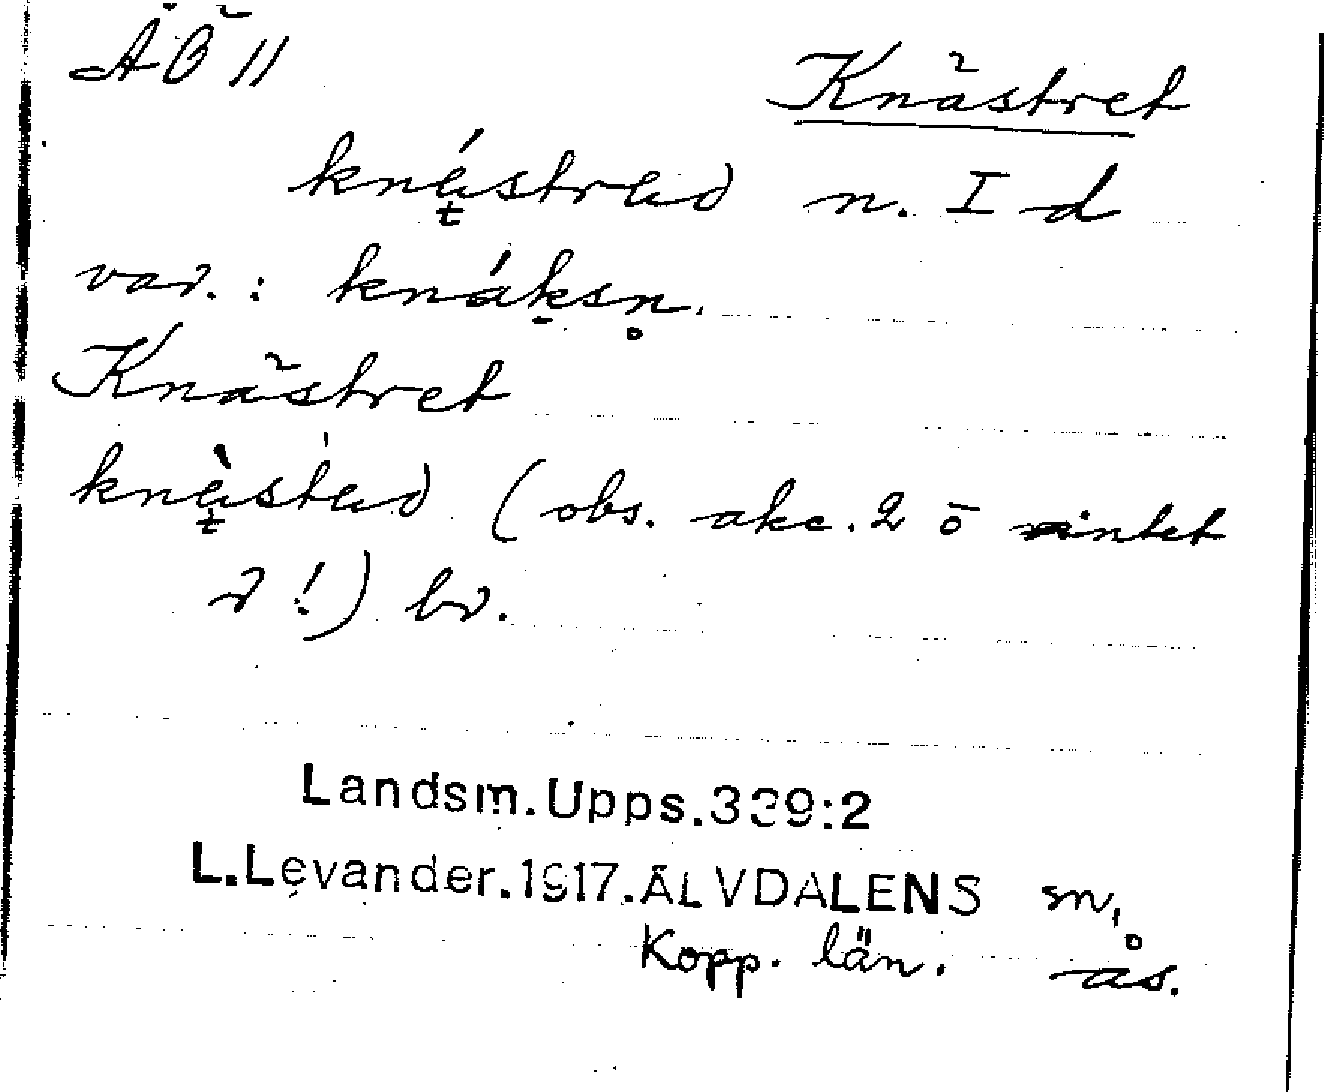 ÅB 11
Knästret
knástred n. I d
var.: knáksn.
Knästret
knàsted (obs. akc. 2 o intet
r!) br.
Landsm.Upps.339:2
L.Levander.1917.ÄLVDALENS sn,
Kopp. län. ås.